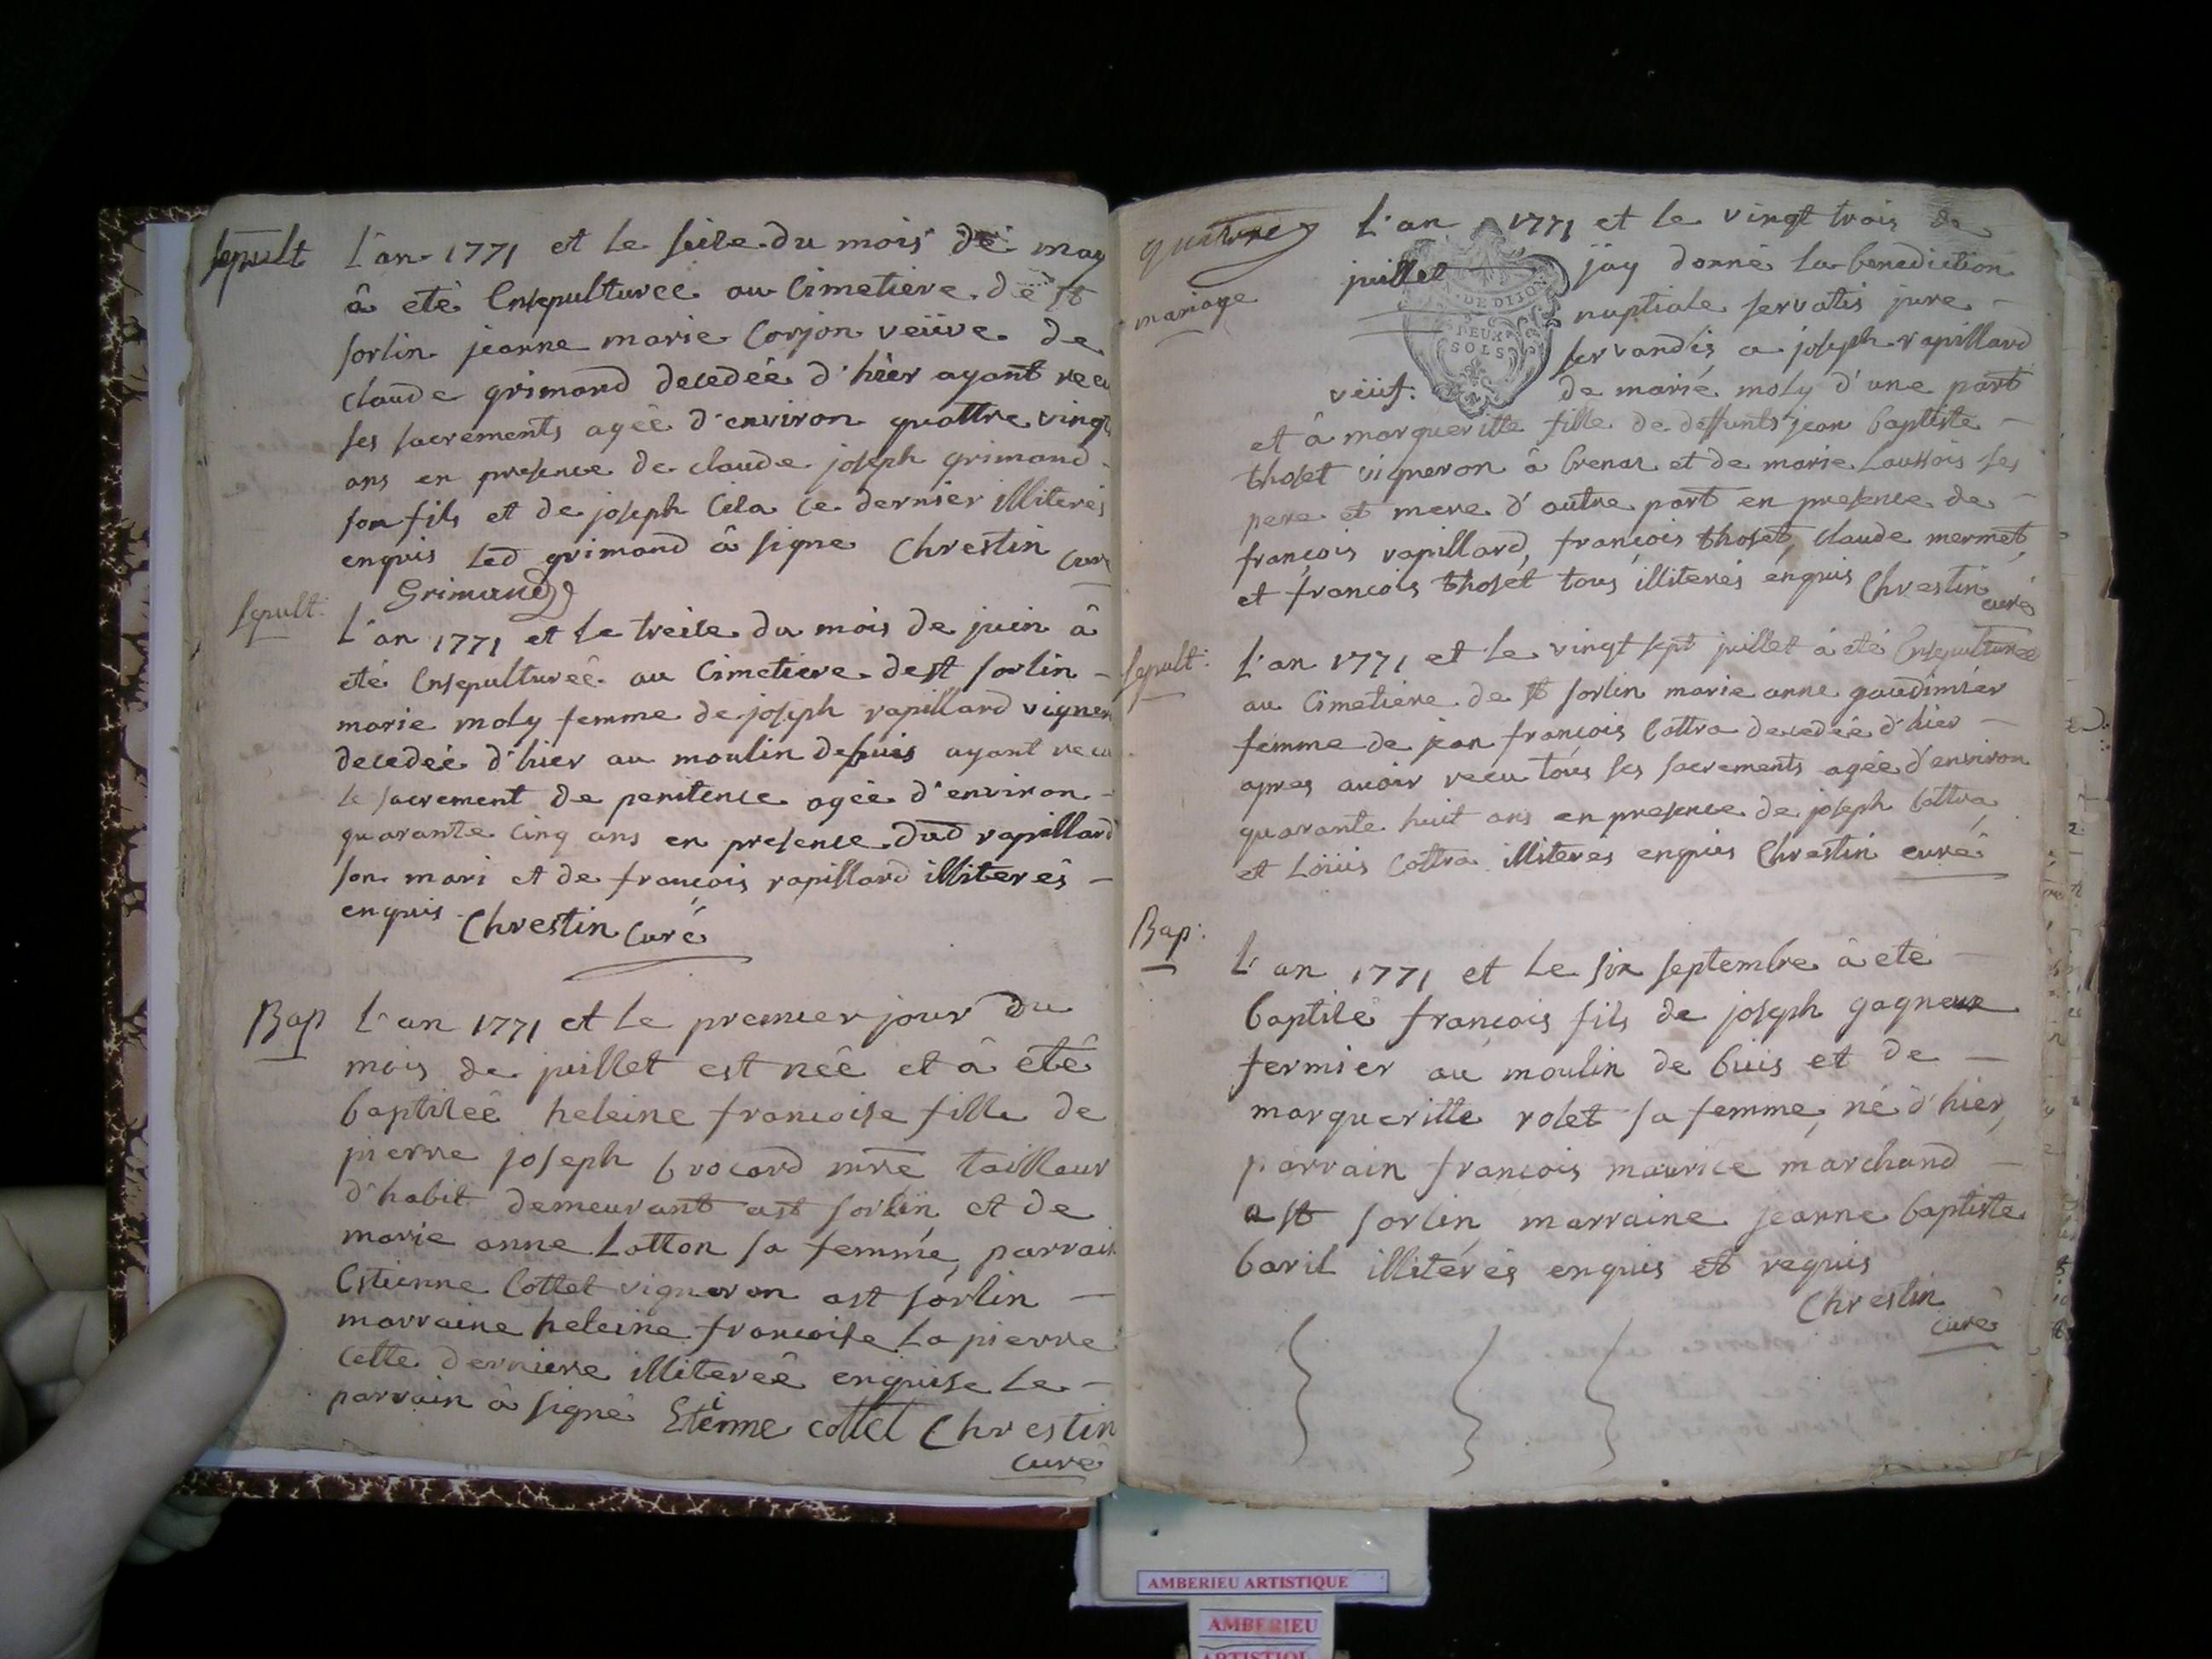 sepult
L'an 1771 et le seize du mois de may
â eté Ensepulturee au Cimetiere de st
sorlin jeanne marie Corjon veüve de
claude grimand decedée d'hier ayant recu
ses sacrements agée d'environ quattre vingt
ans en presence de claude joseph grimand
son fils et de joseph Cila ce dernier illiteré
enquis led grimand â signe Chrestin cure
Grimand
sepult:
L'an 1771 et le treize du mois de juin â
eté Ensepulturée au Cimetiere de st sorlin
marie moly femme de joseph rapillard vigneron
decedée d'hier au moulin debuis ayant recu
le sacrement de penitence agée d'environ
quarante cinq ans en presence dud rapillard
son mari et de francois rapillard illiterés
enquis Chrestin Curé
Bap
L'an 1771 et le premier jour du
mois de juillet est née et â été
baptizeé heleine francoise fille de
pierre joseph brocard mre tailleur
d'habit demeurant ast sorlin et de
marie anne Lotton sa femme, parrain
Estienne Cottet vigneron ast sorlin
marraine heleine francoise Lapierre
cette derniere illitereé enquise le
parrain â signé Etienne cottet Chrestin
curé
quatre
mariage
L'an 1771 et le vingt trois de
juillet jay donné la benediction
nuptiale servatis jure
servandis a joseph rapillard
veüf: de marie moly d'une part
et â margueritte fille de deffunts jean baptiste
thoset vigneron â brenaz et de marie Laussois ses
pere et mere d'autre part en presence de
françois rapillard, françois thoset, claude mermet,
et françois thoset tous illiterés enquis Chrestin curé
N. DE DIJON
DEUX
SOLS
sepult:
L'an 1771 et le vingt sept juillet â eté Ensepulturée
au Cimetiere de st sorlin marie anne gaudimier
femme de jean françois Cottra decedée d'hier
apres avoir recu tous ses sacrements agée d'environ
quarante huit ans en presence de joseph Cottra
et Loüis Cottra illiteres enquis Chrestin curé
Bap:
L'an 1771 et le six septembre â eté
baptizé francois fils de joseph gagneux
fermier au moulin de buis et de
margueritte rolet sa femme, né d'hier,
parrain francois maurice marchand
a st sorlin marraine jeanne baptiste
baril illitérés enquis et requis
Chrestin
curé
AMBERIEU ARTISTIQUE
AMBERIEU
ARTISTIQUE